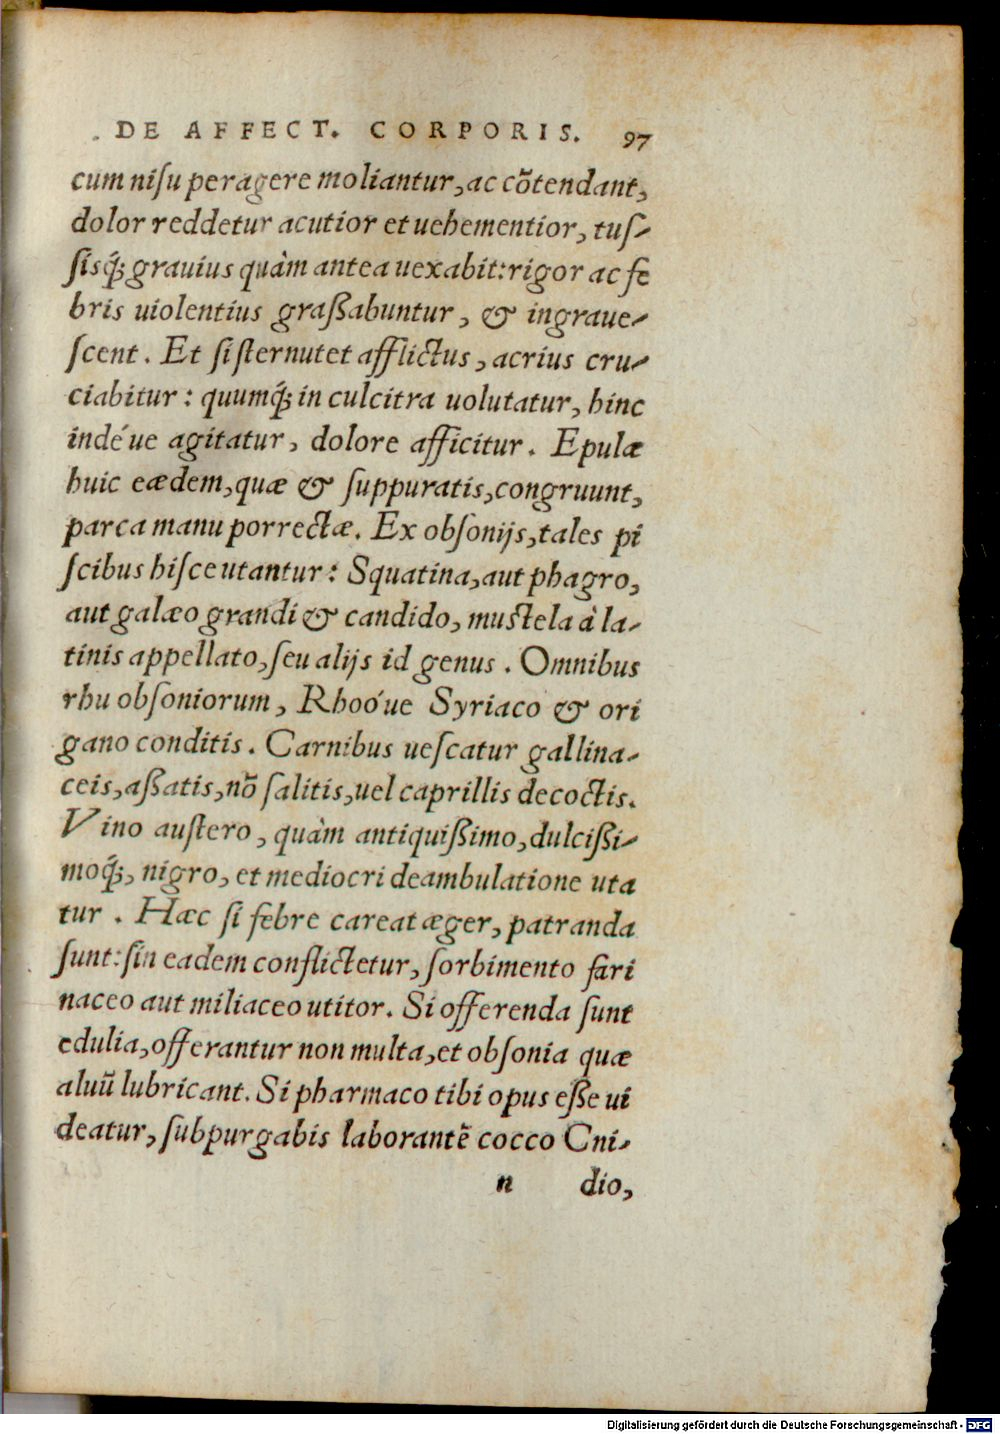 DE AFFECT. CORPORIS. 97
cum niſu peragere moliantur, ac cõtendant,
dolor reddetur acutior et uehementior, tuſ-
ſisq́; grauius quàm antea uexabit: rigor ac fe
bris uiolentius graßabuntur, & ingraue-
ſcent. Et ſi ſternutet afflictus, acrius cru-
ciabitur: quumq́; in culcitra uolutatur, hinc
indéue agitatur, dolore afficitur. Epulæ
huic eædem, quæ & ſuppuratis, congruunt,
parca manu porrectæ. Ex obſonijs, tales pi
ſcibus hiſce utantur: Squatina, aut phagro,
aut galæo grandi & candido, mustela à la-
tinis appellato, ſeu alijs id genus. Omnibus
rhu obſoniorum, Rhoóue Syriaco & ori
gano conditis. Carnibus ueſcatur gallina-
ceis, aßatis, nõ ſalitis, uel caprillis decoctis.
Vino auſtero, quàm antiquißimo, dulcißi-
moq́;, nigro, et mediocri deambulatione uta
tur. Hæc ſi febre careat æger, patranda
ſunt: ſin eadem conflictetur, ſorbimento fari
naceo aut miliaceo utitor. Si offerenda ſunt
edulia, offerantur non multa, et obſonia quæ
aluũ lubricant. Si pharmaco tibi opus eße ui
deatur, ſubpurgabis laborantẽ cocco Cni-
n dio,
Digitalisierung gefördert durch die Deutsche Forschungsgemeinschaft - DFG